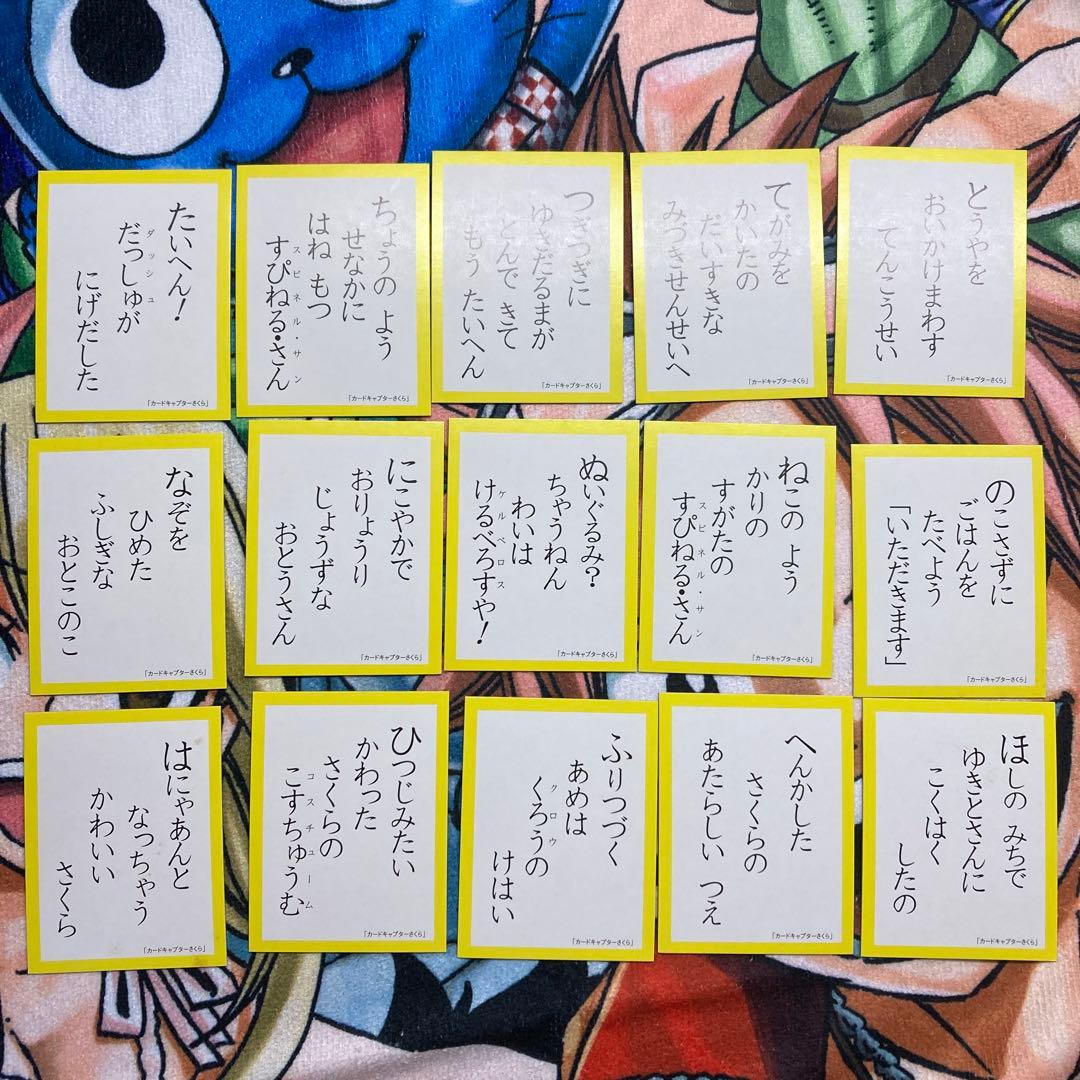 たいへん！
だっしゅが
ダッシュ
にげだした
「カードキャプターさくら」
ちょうの よう
せなかに
はね もつ
すぴねる・さん
スピネル・サン
「カードキャプターさくら」
つぎつぎに
ゆきだるまが
とんで きて
もう たいへん
「カードキャプターさくら」
てがみを
かいたの
だいすきな
みづきせんせいへ
「カードキャプターさくら」
とうやを
おいかけまわす
てんこうせい
「カードキャプターさくら」
なぞを
ひめた
ふしぎな
おとこのこ
「カードキャプターさくら」
にこやかで
おりょうり
じょうずな
おとうさん
「カードキャプターさくら」
ぬいぐるみ？
ちゃうねん
わいは
けるべろすや！
ケルベロス
「カードキャプターさくら」
ねこの よう
かりの
すがたの
すぴねる・さん
スピネル・サン
「カードキャプターさくら」
のこさずに
ごはんを
たべよう
「いただきます」
「カードキャプターさくら」
はにゃあんと
なっちゃう
かわいい
さくら
「カードキャプターさくら」
ひつじみたい
かわった
さくらの
こすちゅうむ
コスチューム
「カードキャプターさくら」
ふりつづく
あめは
くろうの
クロウ
けはい
「カードキャプターさくら」
へんかした
さくらの
あたらしい つえ
「カードキャプターさくら」
ほしの みちで
ゆきとさんに
こくはく
したの
「カードキャプターさくら」